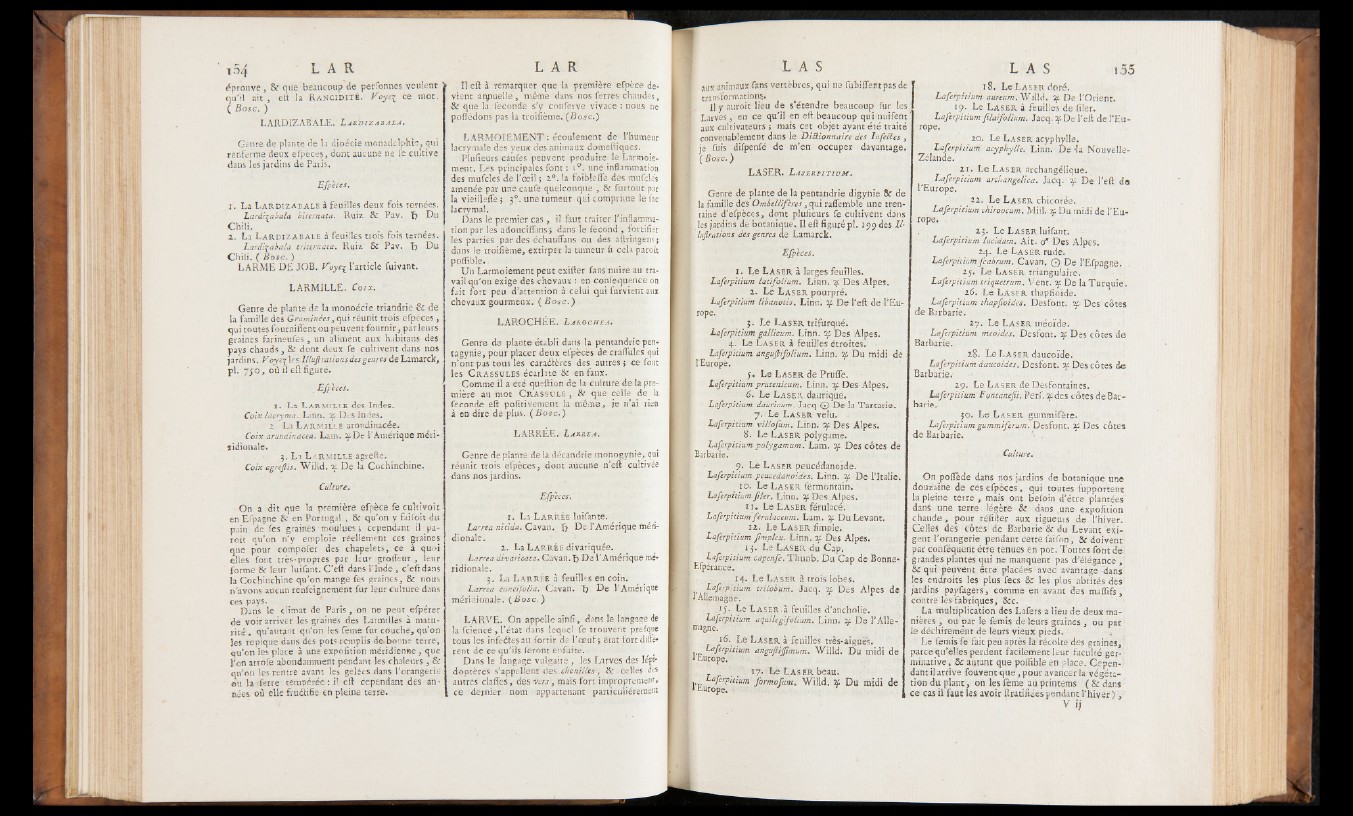 154 LAR
éprouve, & que beaucoup de personnes veulent
qu'il ait, est la RANCIDITÉ. Voyez ce mot.
( Bosc. )
LARDIZABALE. LARDIZABALA.
Genre de plante de la dioécie monadelphie, qui
renferme deux espèces, dont aucune ne se cultive
dans les jardins de Paris.
Espèces.
1. La LARDIZABALE à feuilles deux fois ternées.
Lardizabala biternata. Ruiz & Pav. ♄ Du
Chili.
2. La LARDIZABALE à feuilles trois fois ternées.
Lardizabala triternata. Ruiz & Pav. ♄ Du
Chili. ( Bosc. )
LARME DE JOB. Voyez l'article suivant.
LARMILLE. COIX.
Genre de plante de la monoécie triandrie & de
la famille des Graminées, qui réunit trois espèces,
qui toutes fournissent ou peuvent fournir, par leurs
graines farineuses, un aliment aux habitans des
pays chauds, & dont deux se cultivent dans nos
jardins. Voyez les Illustrations des genres de Lamarck,
pl. 750, où il est figuré.
Espèces.
1. La LARMILLE des Indes.
Coix lacryma. Linn. ♃ Des Indes.
2. La LARMILLE arondinacée.
Coix arundinacea. Lam. ♃ De l'Amérique méri-
dionale.
3. La LARMILLE agreste.
Coix agrestis. Willd. ♃ De la Cochinchine.
Culture.
On a dit que la première espèce se cultivoit
en Espagne & en Portugal, & qu'on y faisoit du
pain de ses graines moulues; cependant il pa-
roît qu'on n'y emploie réellement ces graines
que pour composer des chapelets, ce à quoi
elles sont très-propres par leur grosseur, leur
forme & leur luisant. C'est dans l'Inde, c'est dans
la Cochinchine qu'on mange ses graines, & nous
n'avons aucun renseignement sur leur culture dans
ces pays.
Dans le climat de Paris, on ne peut espérer
de voir arriver les graines des Larmilles à matu-
rité, qu'autant qu'on les sème sur couche, qu'on
les repique dans des pots remplis de bonne terre,
qu'on les place à une exposition méridienne, que
l'on arrose abondamment pendant les chaleurs, &
qu'on les rentre avant les gelées dans l'orangerie
ou la serre tempérée : il est cependant des an-
nées où elle fructifie en pleine terre.
LAR
Il est à remarquer que la première espèce de-
vient annuelle, même dans nos serres chaudes,
& que la seconde s'y conserve vivace : nous ne
possédons pas la troisième. (Bosc.)
LARMOIEMENT : écoulement de l'humeur
lacrymale des yeux des animaux domestiques.
Plusieurs causes peuvent produire le Larmoie-
ment. Les principales sont : 1°. une inflammation
des muscles de l'œil; 2°. la foiblesse des muscles
amenée par une cause quelconque, & surtout par
la vieillesse; 3°. une tumeur qui comprime le sac
lacrymal.
Dans le premier cas, il faut traiter l'inflamma-
tion par les adoucissans; dans le second, fortifier
les parties par des échauffans ou des astringens;
dans le troisième, extirper la tumeur si cela paroît
possible.
Un Larmoiement peut exister sans nuire au tra-
vail qu'on exige des chevaux : en conséquence on
fait fort peu d'attention à celui qui survient aux
chevaux gourmeux. ( Bosc. )
LAROCHÉE. LAROCHEA.
Genre de plante établi dans la pentandrie pen-
tagynie, pour placer deux espèces de crassules qui
n'ont pas tous les caractères des autres; ce sont
les CRASSULES écarlate & en faux.
Comme il a été question de la culture de la pre-
mière au mot CRASSULE, & que celle de la
seconde est positivement la même, je n'ai rien
à en dire de plus. ( Bosc. )
LARRÉE. LARREA.
Genre de plante de la décandrie monogynie, qui
réunit trois espèces, dont aucune n'est cultivée
dans nos jardins.
Espèces.
1. La LARRÉE luisante.
Larrea nitida. Cavan. ♄ De l'Amérique méri-
dionale.
2. La LARRÉE divariquée.
Larrea divaricata. Cavan. ♄ De l'Amérique mé-
ridionale.
3. La LARRÉE à feuilles en coin.
Larrea cuneifolia. Cavan. ♄ De l'Amérique
méridionale. ( Bosc. )
LARVE. On appelle ainsi, dans le langage de
la science, l'état dans lequel se trouvent presque
tous les insectes au sortir de l'œuf; état fort diffé-
rent de ce qu'ils seront ensuite.
Dans le langage vulgaire, les Larves des lépi-
doptères s'appellent des chenilles, & celles des
autres classes, des vers, mais fort improprement,
ce dernier nom appartenant particulièrement
LAS
aux animaux sans vertèbres, qui ne subissent pas de
transformations.
Il y auroit lieu de s'étendre beaucoup sur les
Larves, en ce qu'il en est beaucoup qui nuisent
aux cultivateurs; mais cet objet ayant été traité
convenablement dans le Dictionnaire des Insectes,
je suis dispensé de m'en occuper davantage.
( Bosc. )
LASER. LASERPITIUM.
Genre de plante de la pentandrie digynie & de
la famille des Ombellifères, qui rassemble une tren-
taine d'espèces, dont plusieurs se cultivent dans
les jardins de botanique. Il est figuré pl. 199 des Il-
lustrations des genres de Lamarck.
Espèces.
1. Le LASER à larges feuilles.
Laserpitium latifolium. Linn. ♃ Des Alpes.
2. Le LASER pourpré.
Laserpitium libanotis. Linn. ♃ De l'est de l'Eu-
rope.
3. Le LASER trifurqué.
Laserpitium gallicum. Linn. ♃ Des Alpes.
4. Le LASER à feuilles étroites.
Laserpitium angustifolium. Linn. ♃ Du midi de
l'Europe.
5. Le LASER de Prusse.
Laserpitium prutenicum. Linn. ♃ Des Alpes.
6. Le LASER daurique.
Laserpitium dauricum. Jacq ☉ De la Tartarie.
7. Le LASER velu.
Laserpitium villosum. Linn. ♃ Des Alpes.
8. Le LASER polygame.
Laserpitium polygamum. Lam. ♃ Des côtes de
Barbarie.
9. Le LASER peucédanoïde.
Laserpitium peucedanoides. Linn. ♃ De l'Italie.
10. Le LASER sermontain.
Laserpitium siler. Linn. ♃ Des Alpes.
11. Le LASER férulacé.
Laserpitium ferulaceum. Lam. ♃ Du Levant.
12. Le LASER simple.
Laserpitium simplex. Linn. ♃ Des Alpes.
13. Le LASER du Cap.
Laserpitium capense. Thunb. Du Cap de Bonne-
Espérance.
14. Le LASER à trois lobes.
Laserpitium trilobum. Jacq. ♃ Des Alpes de
l'Allemagne.
15. Le LASER à feuilles d'ancholie.
Laserpitium aquilegifolium. Linn. ♃ De l'Alle-
magne.
16. Le LASER à feuilles très-aiguës.
Laserpitium angustissimum. Willd. Du midi de
l'Europe.
17. Le LASER beau.
Laserpitium formosum. Willd. ♃ Du midi de
l'Europe.
LAS 155
18. Le LASER doré.
Laserpitium aureum. Willd. ♃ De l'Orient.
19. Le LASER à feuilles de filer.
Laserpitium silaifolium. Jacq. ♃ De l'est de l'Eu-
rope.
20. Le LASER acyphylle.
Laserpitium acyphylle. Linn. De la Nouvelle-
Zélande.
21. Le LASER archangélique.
Laserpitium archangelica. Jacq. ♃ De l'est de
l'Europe.
22. Le LASER chicorée.
Laserpitium chironium. Mill. ♃ Du midi de l'Eu-
rope.
23. Le LASER luisant.
Laserpitium lucidum. Ait. ♂ Des Alpes.
24. Le LASER rude.
Laserpitium scabrum. Cavan. ☉ De l'Espagne.
25. Le LASER triangulaire.
Laserpitium triquetrum. Vent. ♃ De la Turquie.
26. Le LASER thapsioïde.
Laserpitium thapsioides. Desfont. ♃ Des côtes
de Barbarie.
27. Le LASER méoïde.
Laserpitium meoides. Desfont. ♃ Des côtes de
Barbarie.
28. Le LASER daucoïde.
Laserpitium daucoides. Desfont. ♃ Des côtes de
Barbarie.
29. Le LASER de Desfontaines.
Laserpitium Fontanesii. Pers. ♃ des côtes de Bar-
barie.
30. Le LASER gummifère.
Laserpitium gummiferum. Desfont. ♃ Des côtes
de Barbarie.
Culture.
On possède dans nos jardins de botanique une
douzaine de ces espèces, qui toutes supportent
la pleine terre, mais ont besoin d'être plantées
dans une terre légère & dans une exposition
chaude, pour résister aux rigueurs de l'hiver.
Celles des côtes de Barbarie & du Levant exi-
gent l'orangerie pendant cette saison, & doivent
par conséquent être tenues en pot. Toutes sont de
grandes plantes qui ne manquent pas d'élégance,
& qui peuvent être placées avec avantage dans
les endroits les plus secs & les plus abrités des
jardins paysagers, comme en avant des massifs,
contre les fabriques, &c.
La multiplication des Lasers a lieu de deux ma-
nières, ou par le semis de leurs graines, ou par
le déchirement de leurs vieux pieds.
Le semis se fait peu après la récolte des graines,
parce qu'elles perdent facilement leur faculté ger-
minative, & autant que possible en place. Cepen-
dant il arrive souvent que, pour avancer la végéta-
tion du plant, on les sème au printems (& dans
ce cas il faut les avoir stratifiées pendant l'hiver),
V ij